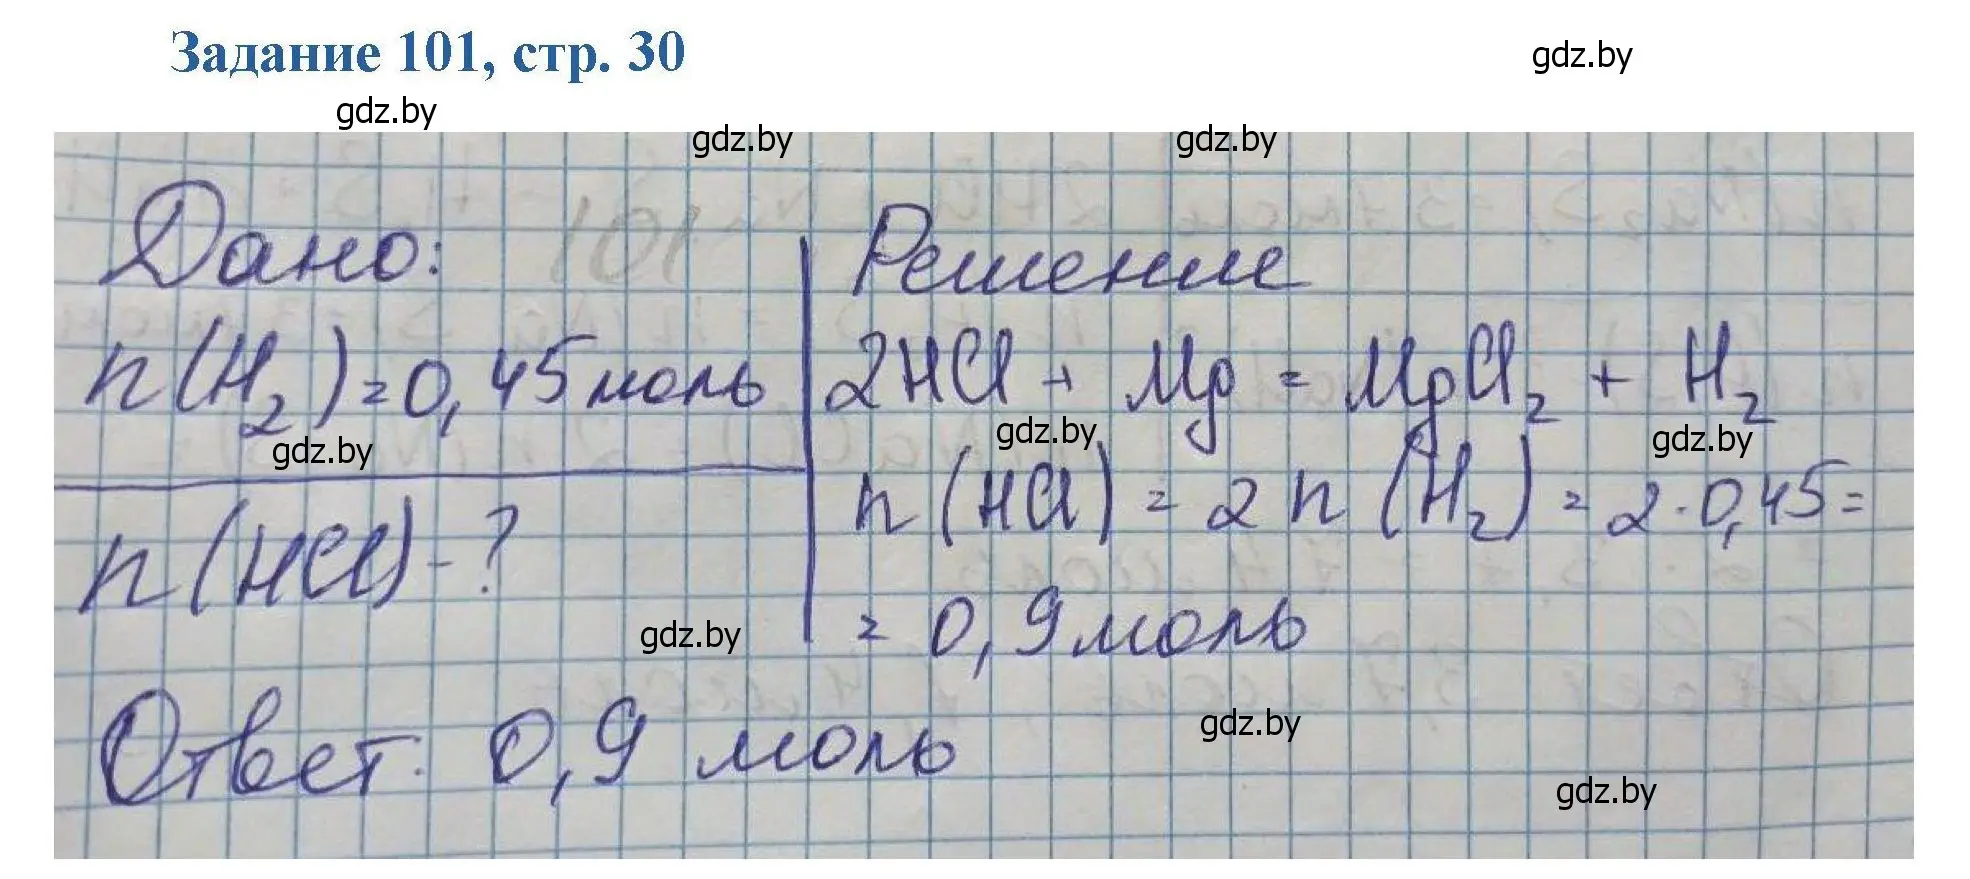 Задание 101, стр. 30
gdz.by
gdz.by
gdz.by
gdz.by
101
Дано:
n(H₂)=0,45 моль
gdz.by
n(HCl)-?
Решение
2HCl + Mg = MgCl₂ + H₂
gdz.by
gdz.by
n(HCl) = 2n(H₂) = 2·0,45=
= 0,9 моль
gdz.by
Ответ: 0,9 моль
gdz.by
gdz.by